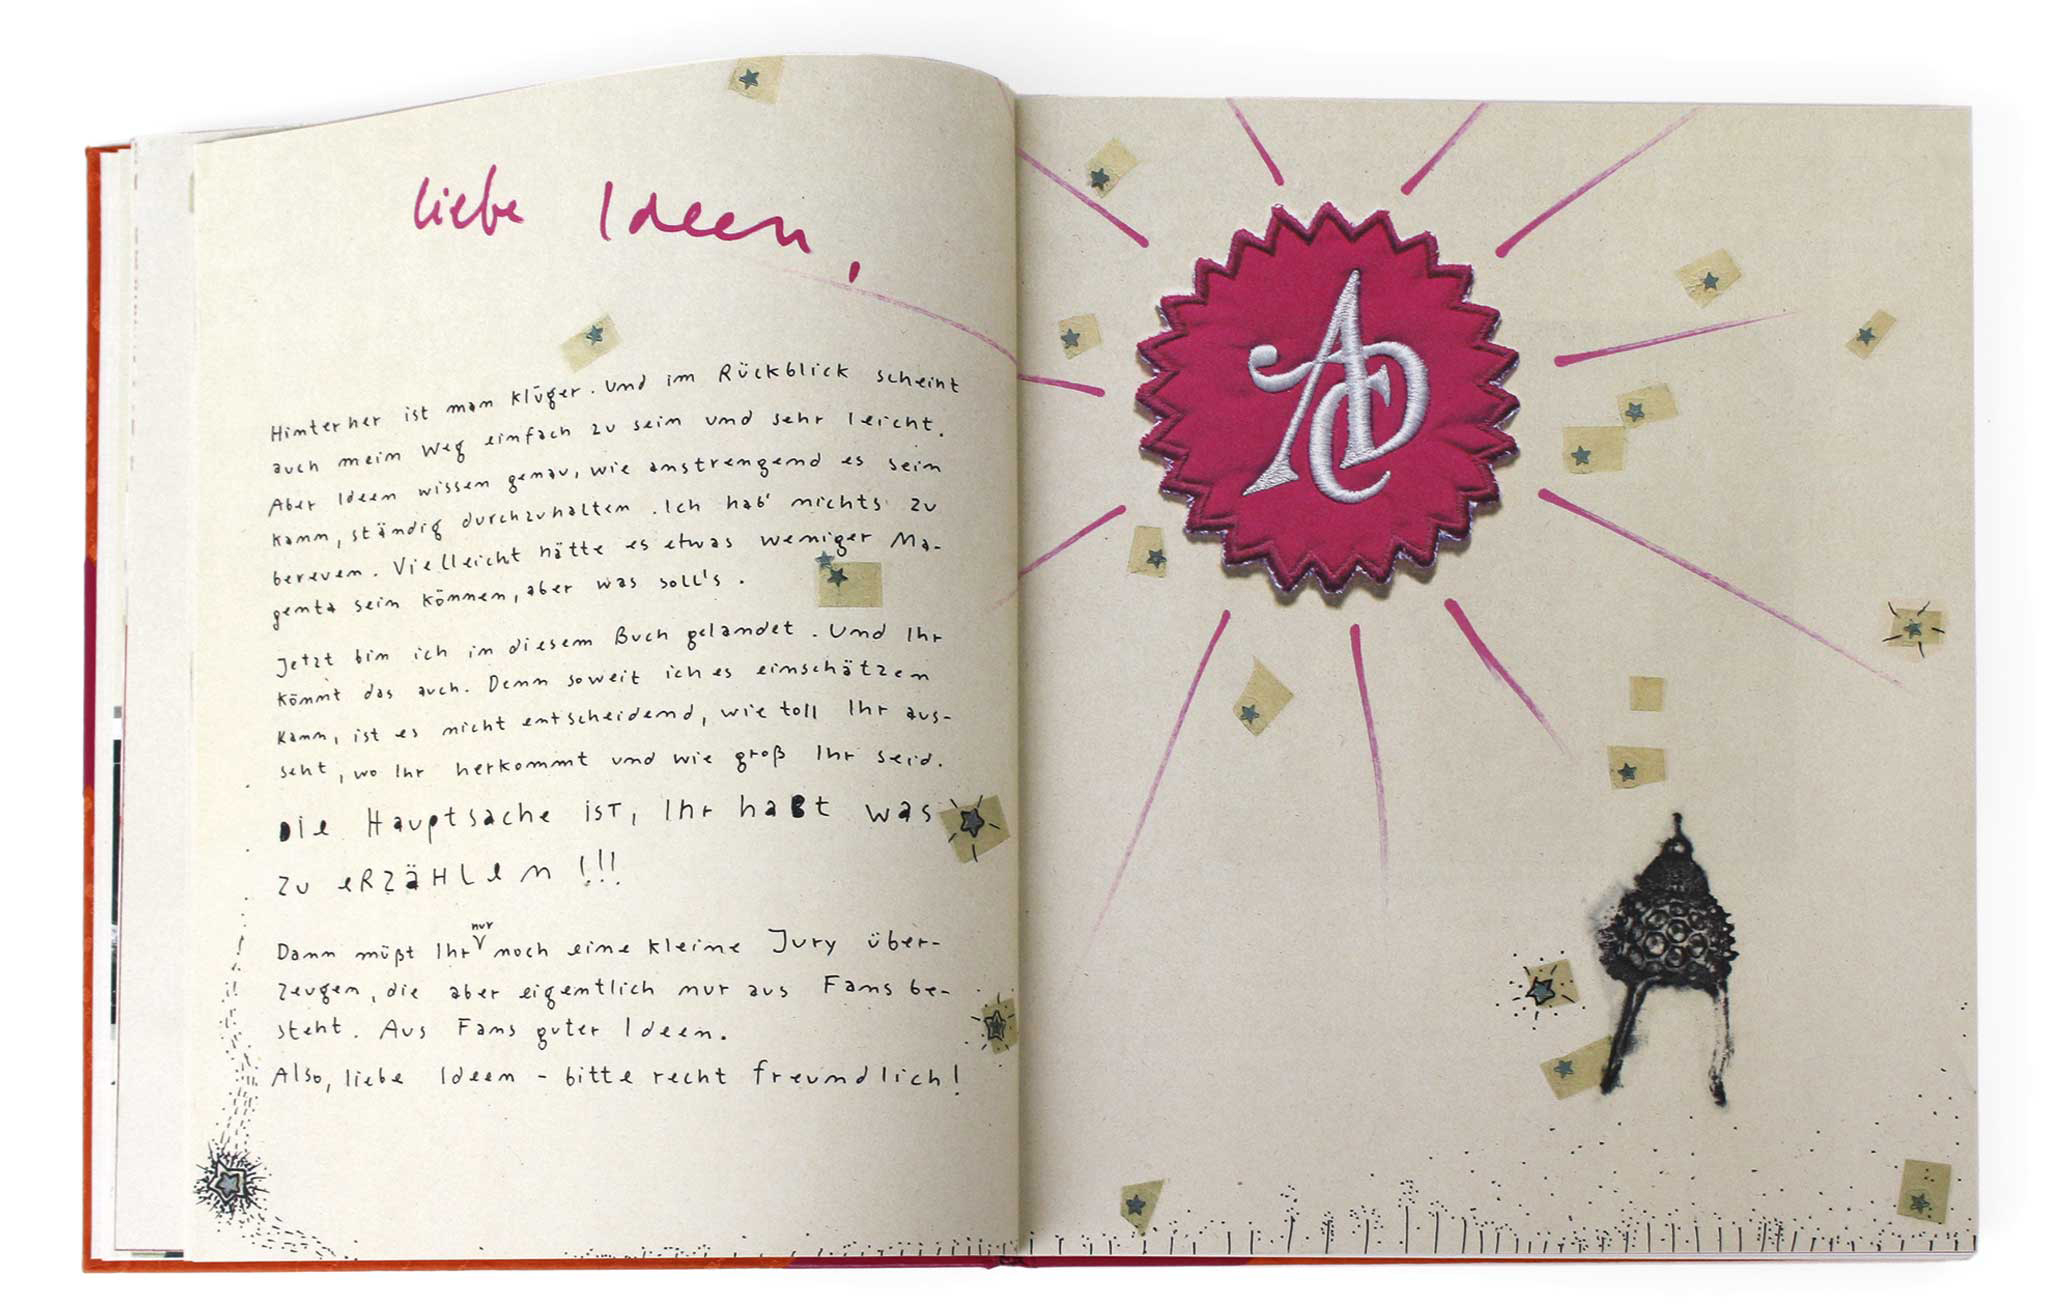 liebe Ideen,
Hinterher ist man klüger. Und im Rückblick scheint
auch mein Weg einfach zu sein und sehr leicht.
Aber Ideen wissen genau, wie anstrengend es sein
kann, ständig durchzuhalten. Ich hab' nichts zu
bereuen. Vielleicht hätte es etwas weniger Ma-
genta sein können, aber was soll's.
Jetzt bin ich in diesem Buch gelandet. Und Ihr
könnt das auch. Denn soweit ich es einschätzen
kann, ist es nicht entscheidend, wie toll Ihr aus-
seht, wo Ihr herkommt und wie groß Ihr seid.
Die Hauptsache ist, Ihr habt was
zu eRZäHLen!!!
Dann müßt Ihr nur noch eine kleine Jury über-
zeugen, die aber eigentlich nur aus Fans be-
steht. Aus Fans guter Ideen.
Also, liebe Ideen - bitte recht freundlich!
ADC